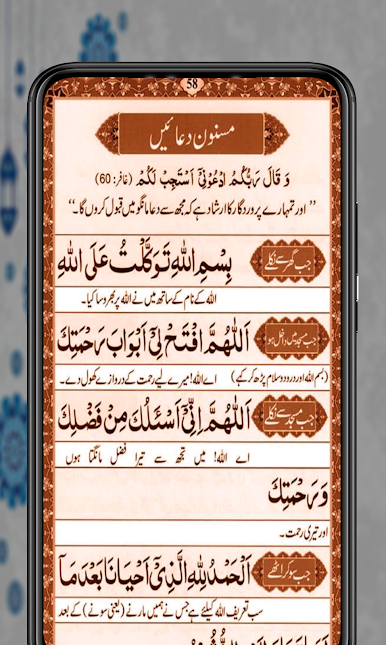 58
مسنون دعائیں
وَ قَالَ رَبُّكُمُ ادْعُوْنِیْۤ اَسْتَجِبْ لَكُمْ (غافر: 60)
”اور تمہارے پروردگار کا ارشاد ہے کہ مجھ سے دعا مانگو میں قبول کروں گا۔“
جب گھر سے نکلے
بِسْمِ اللهِ تَوَكَّلْتُ عَلَی اللهِ
اللہ کے نام کے ساتھ میں نے اللہ پر بھروسا کیا۔
جب مسجد میں داخل ہو
اَللّٰهُمَّ افْتَحْ لِیْۤ اَبْوَابَ رَحْمَتِكَ
(بسم اللہ اور درود و سلام پڑھ کر کہے) اے اللہ! میرے لیے رحمت کے دروازے کھول دے۔
جب مسجد سے نکلے
اَللّٰهُمَّ اِنِّیْۤ اَسْئَلُكَ مِنْ فَضْلِكَ
اے اللہ! میں تجھ سے تیرا فضل مانگتا ہوں
وَرَحْمَتِكَ
اور تیری رحمت۔
جب سو کر اٹھے
اَلْحَمْدُ لِلّٰهِ الَّذِیْۤ اَحْیَانَا بَعْدَ مَاۤ
سب تعریف اللہ کیلئے ہے جس نے ہمیں مارنے (یعنی سونے) کے بعد